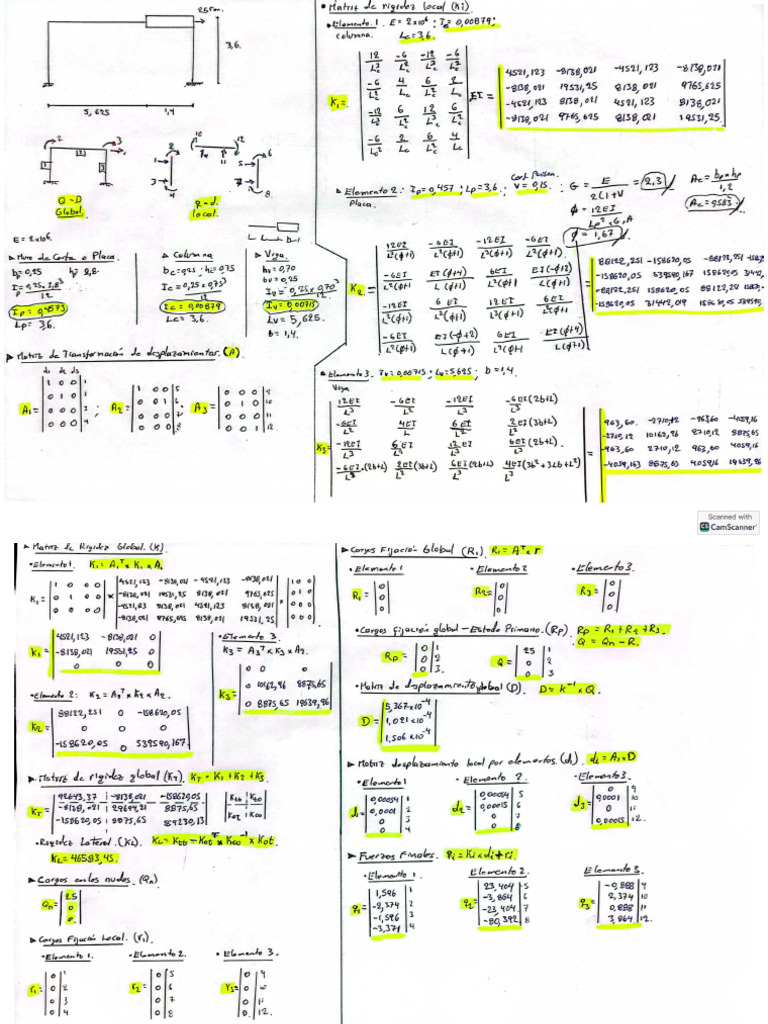 25 Ton.
3,6.
5,625
1,4
Q-D
Global.
q-d.
local.
E = 2x10⁶
L b
▸ Muro de Corte o Placa.
bp=0,25 hp= 2,8.
Ip = 0,25 x 2,8³
12
Ip = 0,4573
Lp = 3,6.
▸ Columna
bc=0,25 ; hc=0,75
Ic = 0,25 x 0,75³
12
Ic = 0,00879
Lc= 3,6.
▸ Viga.
hv = 0,70
bv = 0,25
Iv = 0,25 x 0,70³
12
Iv = 0,00715
Lv = 5,625.
b = 1,4.
▸ Matriz de Transformación de desplazamientos. (A)
d₁ d₂ d₃
A₁ =
1 0 0 1
0 1 0 2
0 0 0 3
0 0 0 4
;
A₂ =
1 0 0 5
0 0 1 6
0 0 0 7
0 0 0 8
;
A₃ =
0 0 0 9
0 1 0 10
0 0 0 11
0 0 1 12
• Matriz de rigidez local (Ki)
• Elemento 1. E = 2x10⁶ ; Ic = 0,00879;
columna. Lc = 3,6.
K₁ =
12/Lc³ -6/Lc² -12/Lc³ -6/Lc²
-6/Lc² 4/Lc 6/Lc² 2/Lc
-12/Lc³ 6/Lc² 12/Lc³ 6/Lc²
-6/Lc² 2/Lc 6/Lc² 4/Lc
EI =
4521,123 -8138,021 -4521,123 -8138,021
-8138,021 19531,25 8138,021 9765,625
-4521,123 8138,021 4521,123 8138,021
-8138,021 9765,625 8138,021 19531,25
▸ Elemento 2: Ip = 0,457 ; Lp = 3,6.
Placa.
V = 0,15.
G = E / 2(1+V) = 2,3
Ac = bp x hp
1,2
Ac = 0,583
φ = 12EI / Lp² . G . A
φ = 1,67
K₂ =
12EI/L³(φ+1) -6EI/L²(φ+1) -12EI/L³(φ+1) -6EI/L²(φ+1)
-6EI/L²(φ+1) EI(φ+4)/L(φ+1) 6EI/L²(φ+1) EI(-φ+2)/L(φ+1)
-12EI/L³(φ+1) 6EI/L²(φ+1) 12EI/L³(φ+1) 6EI/L²(φ+1)
-6EI/L²(φ+1) EI(-φ+2)/L(φ+1) 6EI/L²(φ+1) EI(φ+4)/L(φ+1)
=
88122,251 -158620,05 -88122,251
-158620,05 539590,167 158620,05
-88122,251 158620,05 88122,251
-158620,05 31442,019 158620,05
▸ Elemento 3. Iv = 0,00715 ; Lv = 5,625 ; b = 1,4.
Viga
K₃ =
12EI/L³ -6EI/L² -12EI/L³ -6EI/L³(2b+L)
-6EI/L² 4EI/L 6EI/L² 2EI/L²(3b+L)
-12EI/L³ 6EI/L² 12EI/L³ 6EI/L³(2b+L).
-6EI/L³.(2b+L) 2EI/L²(3b+L) 6EI/L³(2b+L) 4EI/L³(3b²+3Lb+L²)
=
963,60 -2710,12 -963,60 -4059,16
-2710,12 10162,96 2710,12 8875,65
-963,60 2710,12 963,60 4059,16
-4059,163 8875,65 4059,16 19639,96
Scanned with
CS CamScanner
▸ Matriz de Rigidez Global. (K)
• Elemento 1 K₁ = A₁ᵀ x K₁ x A₁
K₁ =
1 0 0 0
0 1 0 0
0 0 0 0
x
4521,123 -8138,021 -4521,123 -8138,021
-8138,021 19531,25 8138,021 9765,625
-4521,123 8138,021 4521,123 8138,021
-8138,021 9765,625 8138,021 19531,25
x
1 0 0
0 1 0
0 0 0
0 0 0
K₁ =
4521,123 -8138,021 0
-8138,021 19531,25 0
0 0 0
• Elemento 3
K₃ = A₃ᵀ x K₃ x A₃.
K₃ =
0 0 0
0 10162,96 8875,65
0 8875,65 19639,96
• Elemento 2: K₂ = A₂ᵀ x K₂ x A₂.
K₂ =
88122,251 0 -158620,05
0 0 0
-158620,05 0 539590,167
▸ Matriz de rigidez global (KT) KT = K₁ + K₂ + K₃
KT =
92643,37 -8138,021 -158620,05
-8138,021 29694,21 8875,65
-158620,05 8875,65 559230,13
Ktt Kto
Kot Koo
• Rigidez Lateral. (KL) KL = Ktt - Kotᵀ x Koo⁻¹ x Kot
KL = 46583,45
▸ Cargas en los nudos. (Qn)
Qn =
25
0
0.
▸ Cargas Fijación Local. (ri).
• Elemento 1. • Elemento 2. • Elemento 3.
r₁ =
0 1
0 2
0 3
0 4
r₂ =
0 5
0 6
0 7
0 8
r₃ =
0 9
0 10
0 11
0 12.
▸ Cargas Fijación Global (Ri) Ri = Aᵀ x r
• Elemento 1 • Elemento 2 • Elemento 3.
R₁ =
0
0
0
R₂ =
0
0
0
R₃ =
0
0
0
• Cargas fijación global - Estado Primario. (Rp) Rp = R₁ + R₂ + R₃.
Q = Qn - R.
Rp =
0 1
0 2
0 3.
Q =
25 1
0 2
0 3.
• Matriz de desplazamiento global (D). D = K⁻¹ x Q.
D =
5,367x10⁻⁴
1,021x10⁻⁴
1,506x10⁻⁴
▸ Matriz desplazamiento local por elementos. (di) di = Ai x D
• Elemento 1 Elemento 2. • Elemento 3.
d₁ =
0,00054 1
0,0001 2
0 3
0 4
d₂ =
0,00054 5
0,00015 6
0 7
0 8
d₃ =
0 9
0,0001 10
0 11
0,00015 12.
▸ Fuerzas Finales. qi = Ki x di + ri
• Elemento 1 Elemento 2. Elemento 3.
q₁ =
1,596 1
-2,374 2
-1,596 3
-3,371 4
q₂ =
23,404 5
-3,864 6
-23,404 7
-80,392 8
q₃ =
-0,888 9
2,374 10
0,888 11
3,864 12.